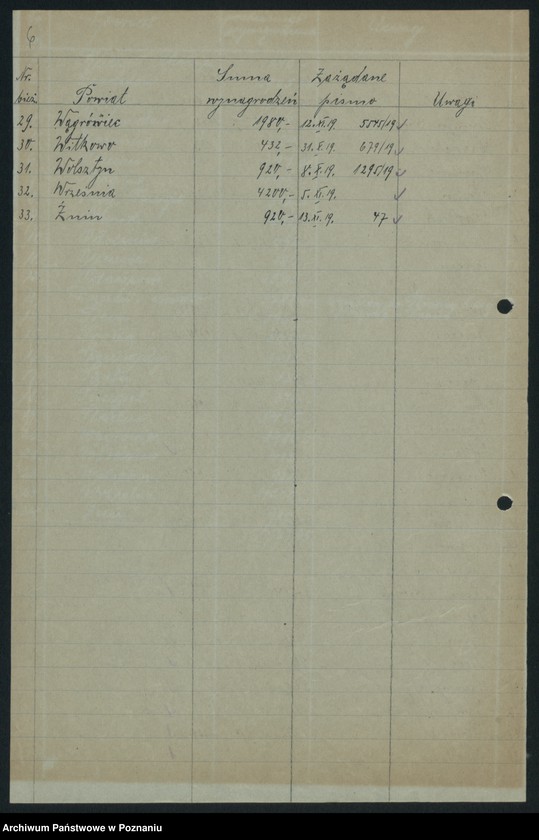 6
Nr. bież. Powiat Suma wynagrodzeń Zażądane pismo Uwagi
29. Wągrówiec 1980,- 12.XI.19. 5545/19 ✓
30. Witkowo 432,- 31.X.19. 679/19 ✓
31. Wolsztyn 920,- 8.X.19. 1295/19 ✓
32. Września 4200,- 5.XI.19. ✓
33. Żnin 920,- 13.XI.19. 47 ✓
Archiwum Państwowe w Poznaniu